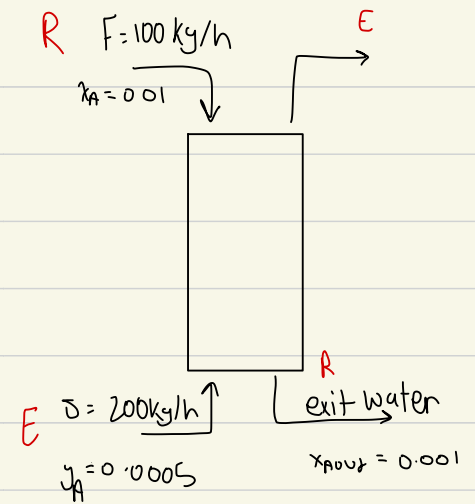 R F=100 kg/h
E
xA = 0.01
R
E S = 200kg/h
exit water
yA = 0.0005
xAout = 0.001